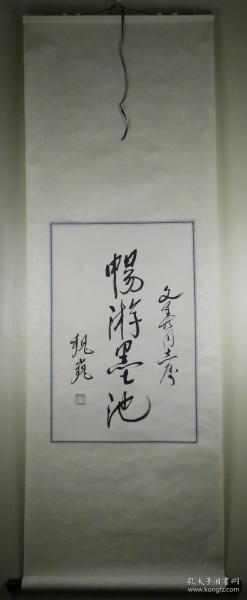 文星同志属
暢游墨池
魏巍
孔夫子旧书网
www.kongfz.com